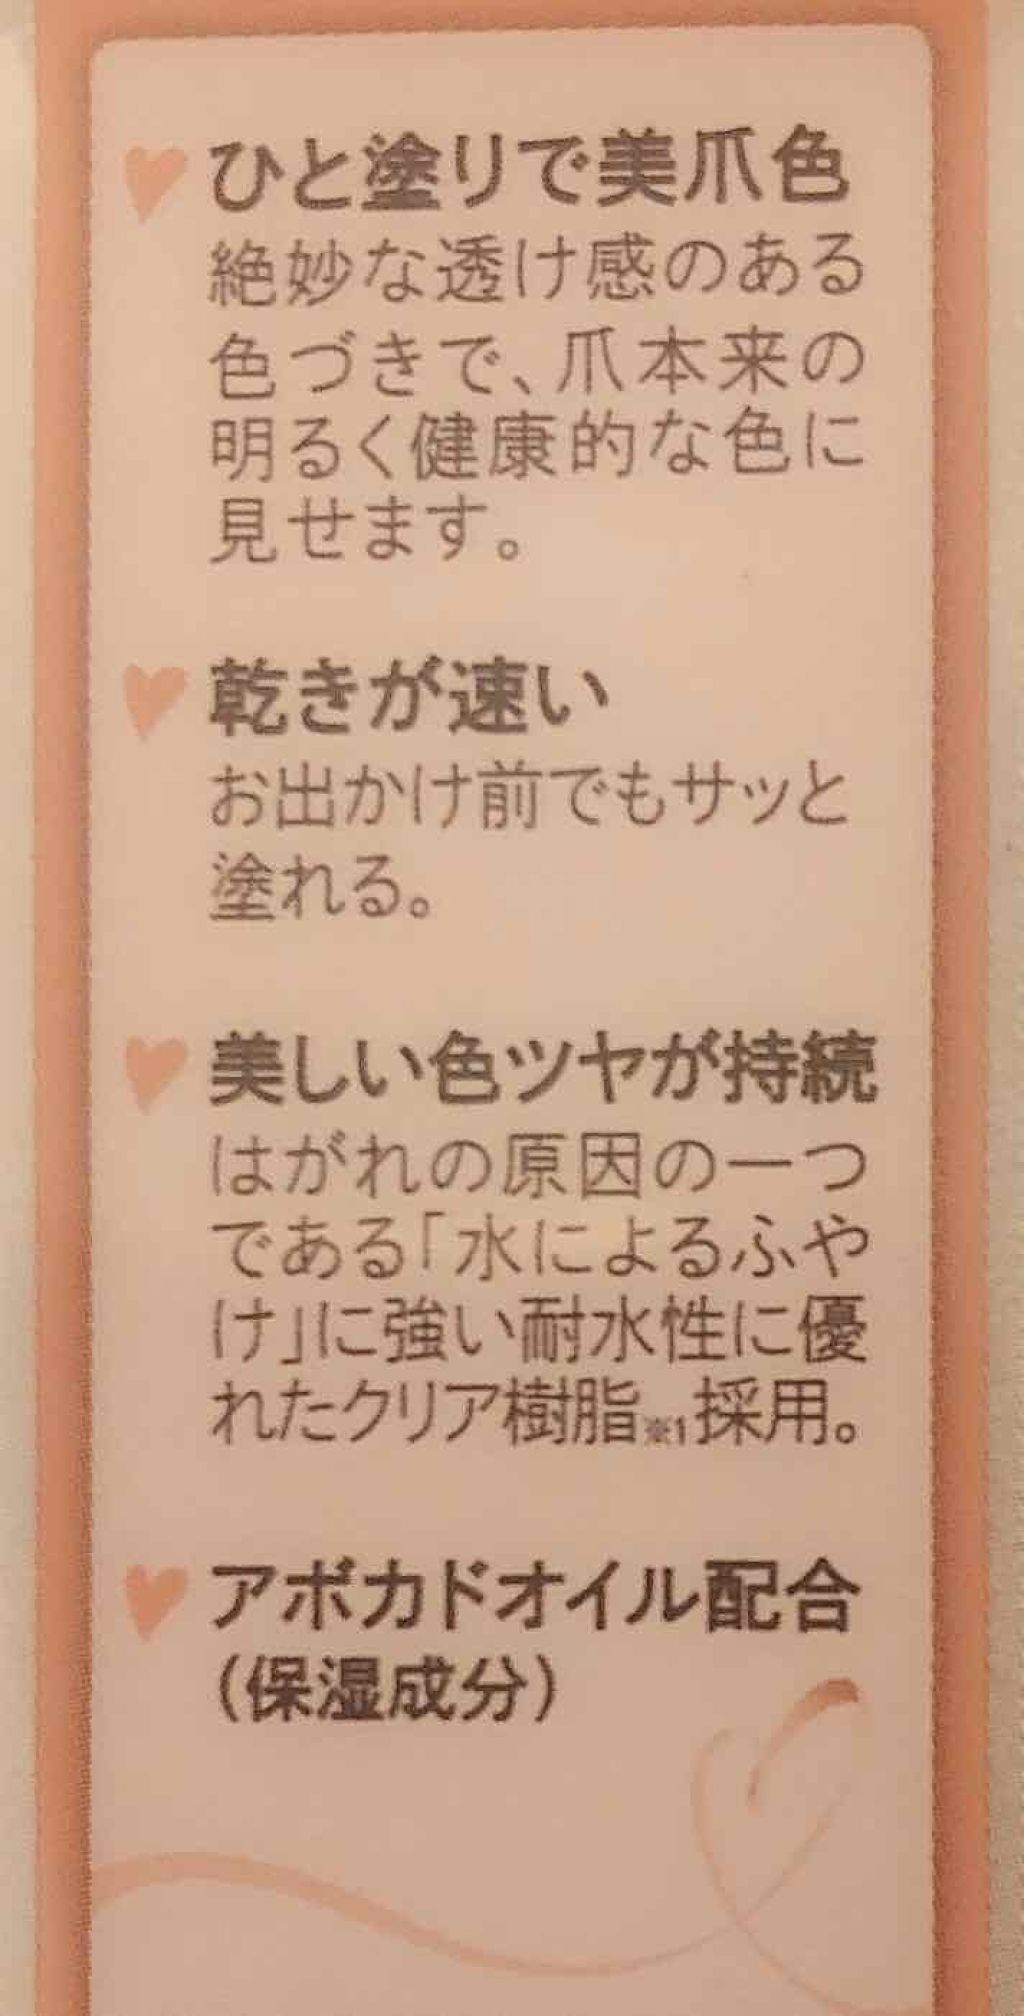 ひと塗りで美爪色
絶妙な透け感のある
色づきで、爪本来の
明るく健康的な色に
見せます。
乾きが速い
お出かけ前でもサッと
塗れる。
美しい色ツヤが持続
はがれの原因の一つ
である「水によるふや
け」に強い耐水性に優
れたクリア樹脂※1採用。
アボカドオイル配合
(保湿成分)